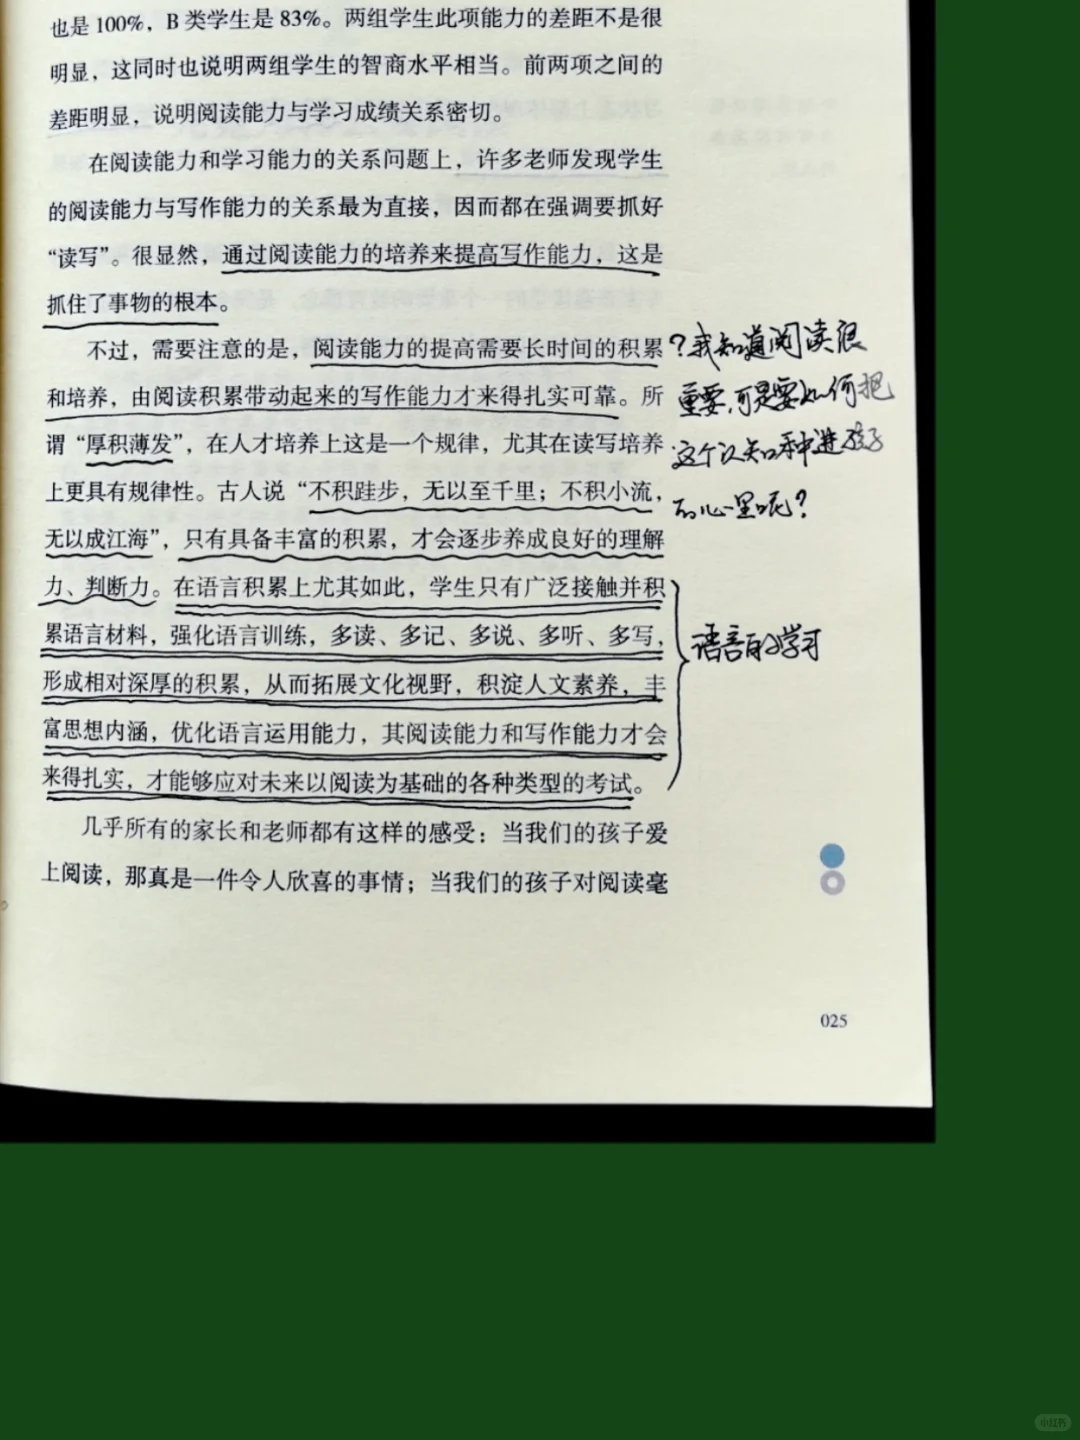 也是 100%，B 类学生是 83%。两组学生此项能力的差距不是很
明显，这同时也说明两组学生的智商水平相当。前两项之间的
差距明显，说明阅读能力与学习成绩关系密切。
在阅读能力和学习能力的关系问题上，许多老师发现学生
的阅读能力与写作能力的关系最为直接，因而都在强调要抓好
“读写”。很显然，通过阅读能力的培养来提高写作能力，这是
抓住了事物的根本。
不过，需要注意的是，阅读能力的提高需要长时间的积累
和培养，由阅读积累带动起来的写作能力才来得扎实可靠。所
谓“厚积薄发”，在人才培养上这是一个规律，尤其在读写培养
上更具有规律性。古人说“不积跬步，无以至千里；不积小流，
无以成江海”，只有具备丰富的积累，才会逐步养成良好的理解
力、判断力。在语言积累上尤其如此，学生只有广泛接触并积
累语言材料，强化语言训练，多读、多记、多说、多听、多写，
形成相对深厚的积累，从而拓展文化视野，积淀人文素养，丰
富思想内涵，优化语言运用能力，其阅读能力和写作能力才会
来得扎实，才能够应对未来以阅读为基础的各种类型的考试。
几乎所有的家长和老师都有这样的感受：当我们的孩子爱
上阅读，那真是一件令人欣喜的事情；当我们的孩子对阅读毫
？我知道阅读很
重要，可是要如何把
这个认知种进孩子
的心里呢？
语言的学习
025
小红书